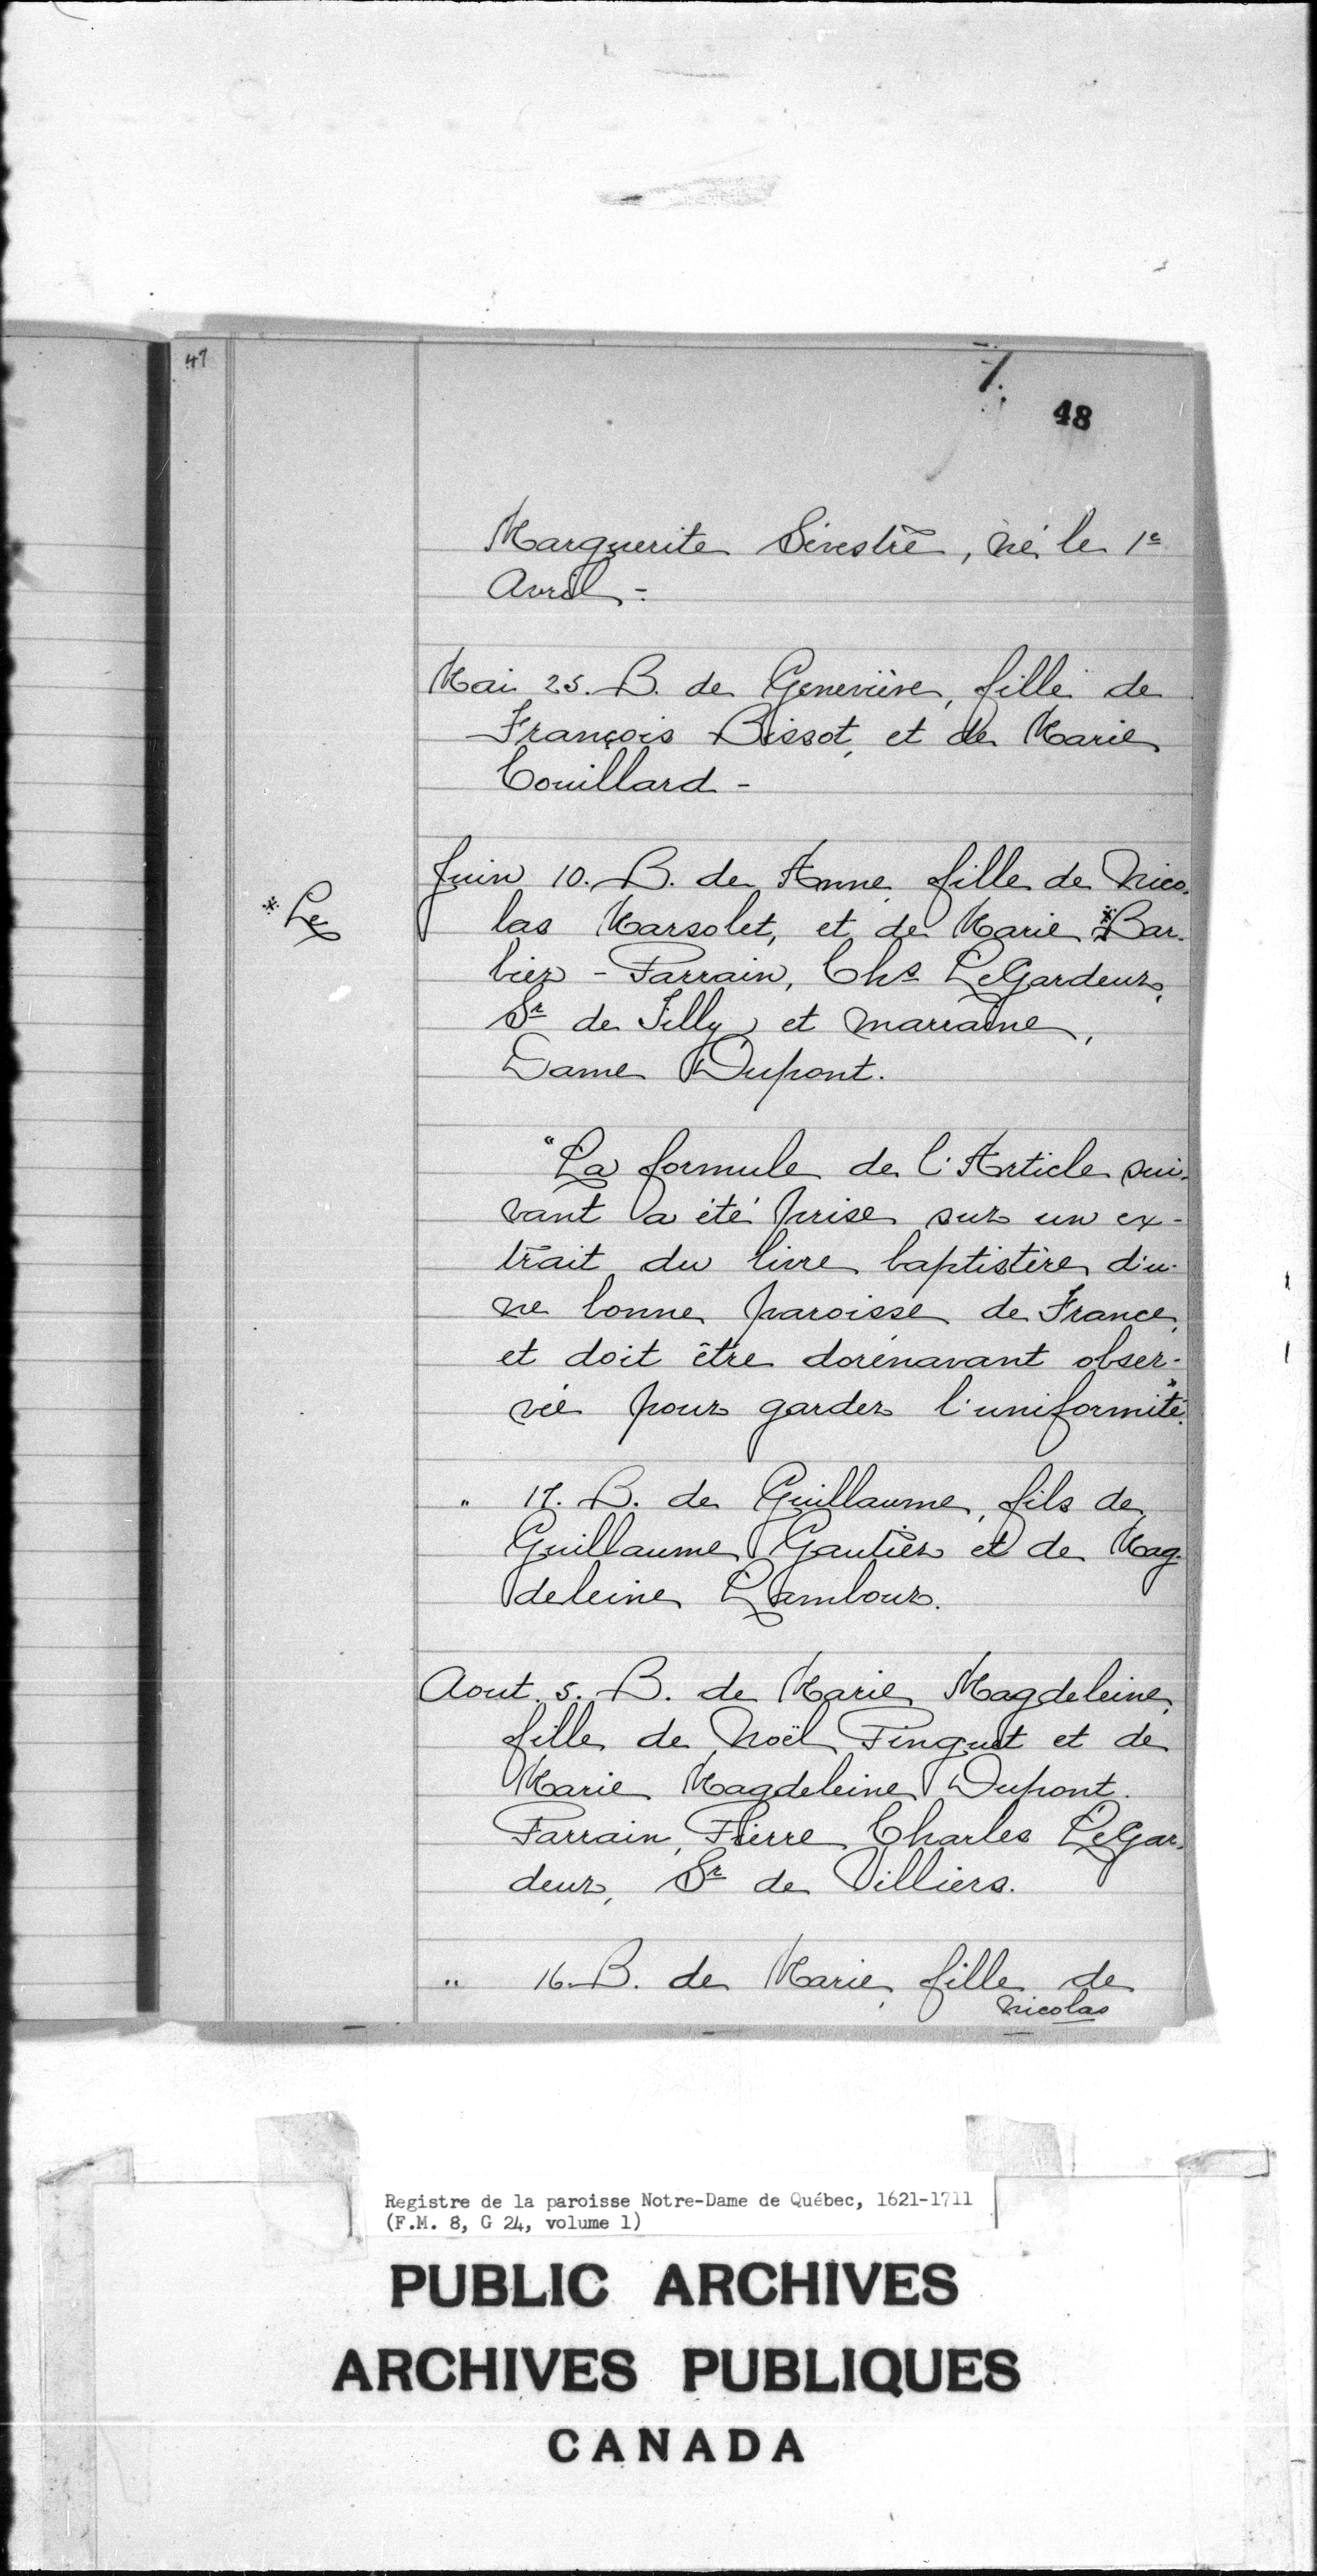 47
7.
48
Marguerite Sévestre, né le 1e
Avril -
Mai 25. B. de Geneviève, fille de
François Bissot, et de Marie
Couillard -
Juin 10. B. de Anne, fille de Nico-
* Le
las Marsolet, et de Marie * Bar-
bier - Parrain, Chs LeGardeur,
Sr de Tilly, et marraine,
Dame Dupont.
"La formule de l'Article sui-
vant a été prise sur un ex-
trait du livre baptistère d'u-
ne bonne paroisse de France,
et doit être dorénavant obser-
vée pour garder l'uniformité."
" 17. B. de Guillaume, fils de
Guillaume Gautier et de Mag-
deleine Lambour.
Aout 5. B. de Marie Magdeleine,
fille de Noël Pinguet et de
Marie Magdeleine Dupont.
Parrain, Pierre Charles LeGar-
deur, Sr de Villiers.
" 16. B. de Marie, fille de
Nicolas
Registre de la paroisse Notre-Dame de Québec, 1621-1711
(F.M. 8, G 24, volume 1)
PUBLIC ARCHIVES
ARCHIVES PUBLIQUES
CANADA